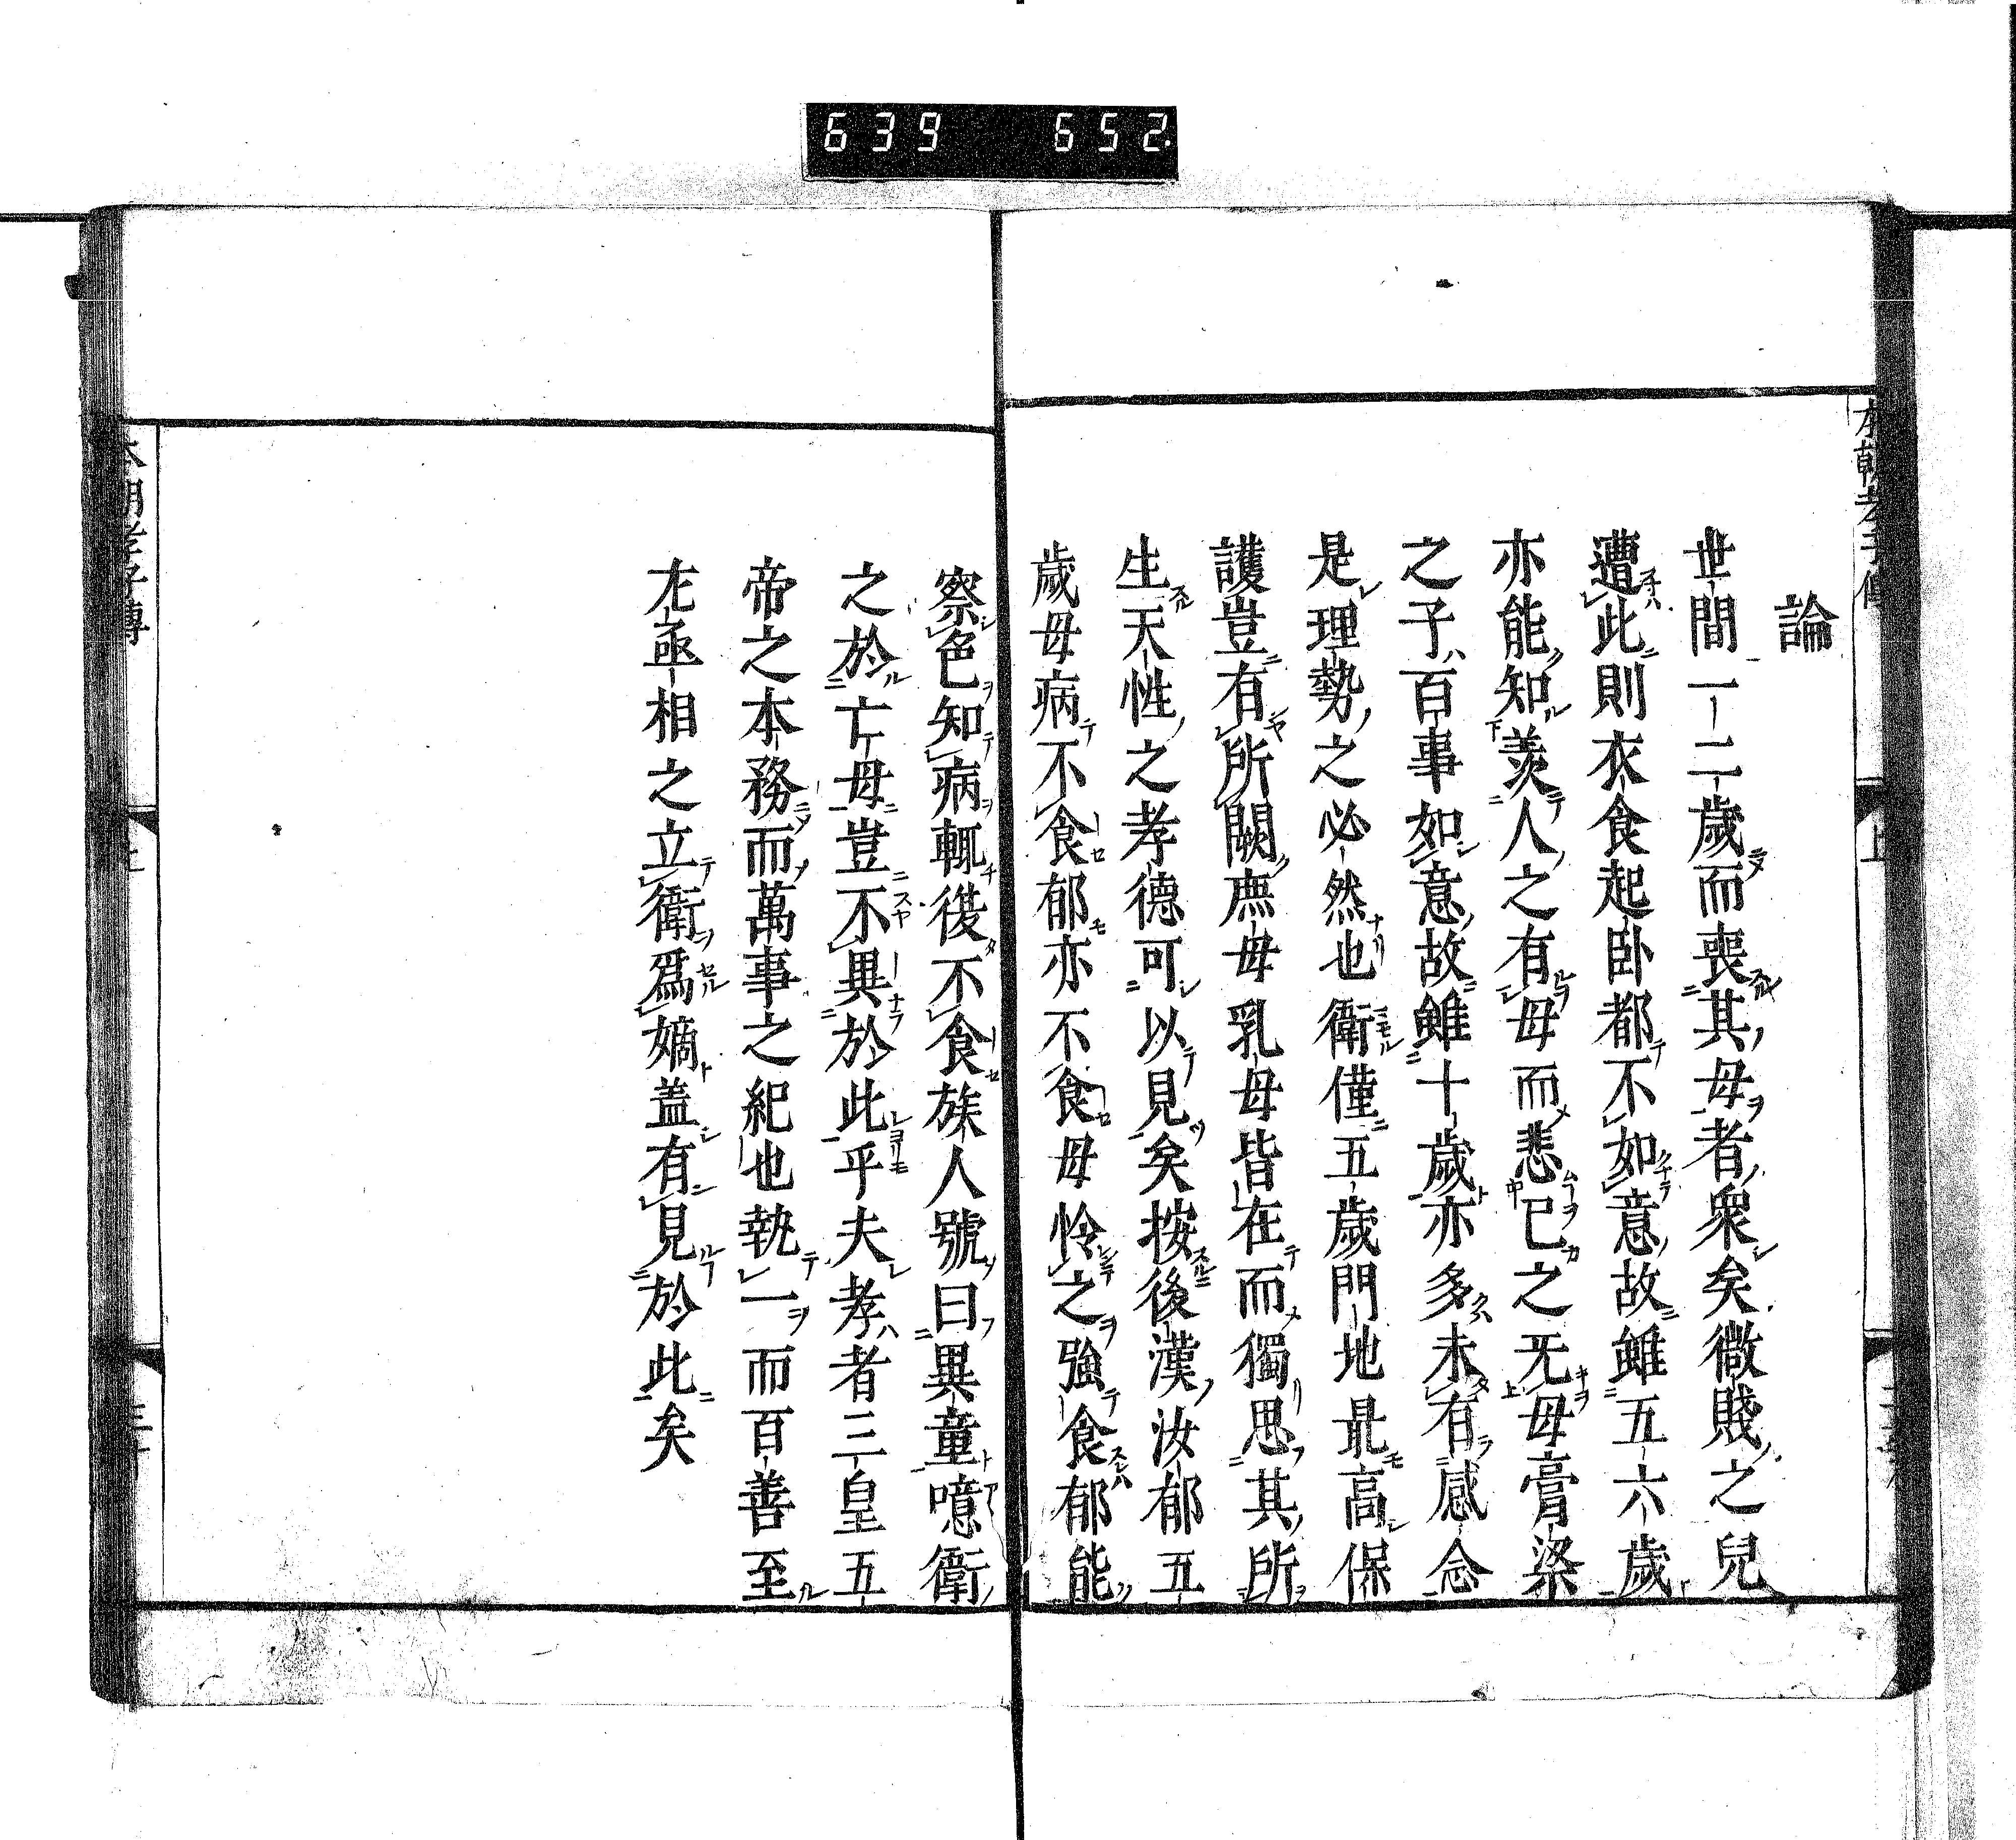 639 652
本朝孝子傳
上
論
世間一二歲而喪其母者衆矣微賤之兒
遭此則衣食起卧都不如意故雖五六歲
亦能知羨人之有母而悲已之无母膏粱
之子百事如意故雖十歲亦多未有感念
是理勢之必然也衛僅五歲門地最高保
護豈有所闕庶母乳母皆在而獨思其所
生天性之孝德可以見矣按後漢汝郁五
歲母病不食郁亦不食母怜之強食郁能
察色知病輒復不食族人號曰異童噫衛
之於亡母豈不異於此乎夫孝者三皇五
帝之本務而萬事之紀也執一而百善至
左丞相之立衛爲嫡盖有見於此矣
本朝孝子傳
上